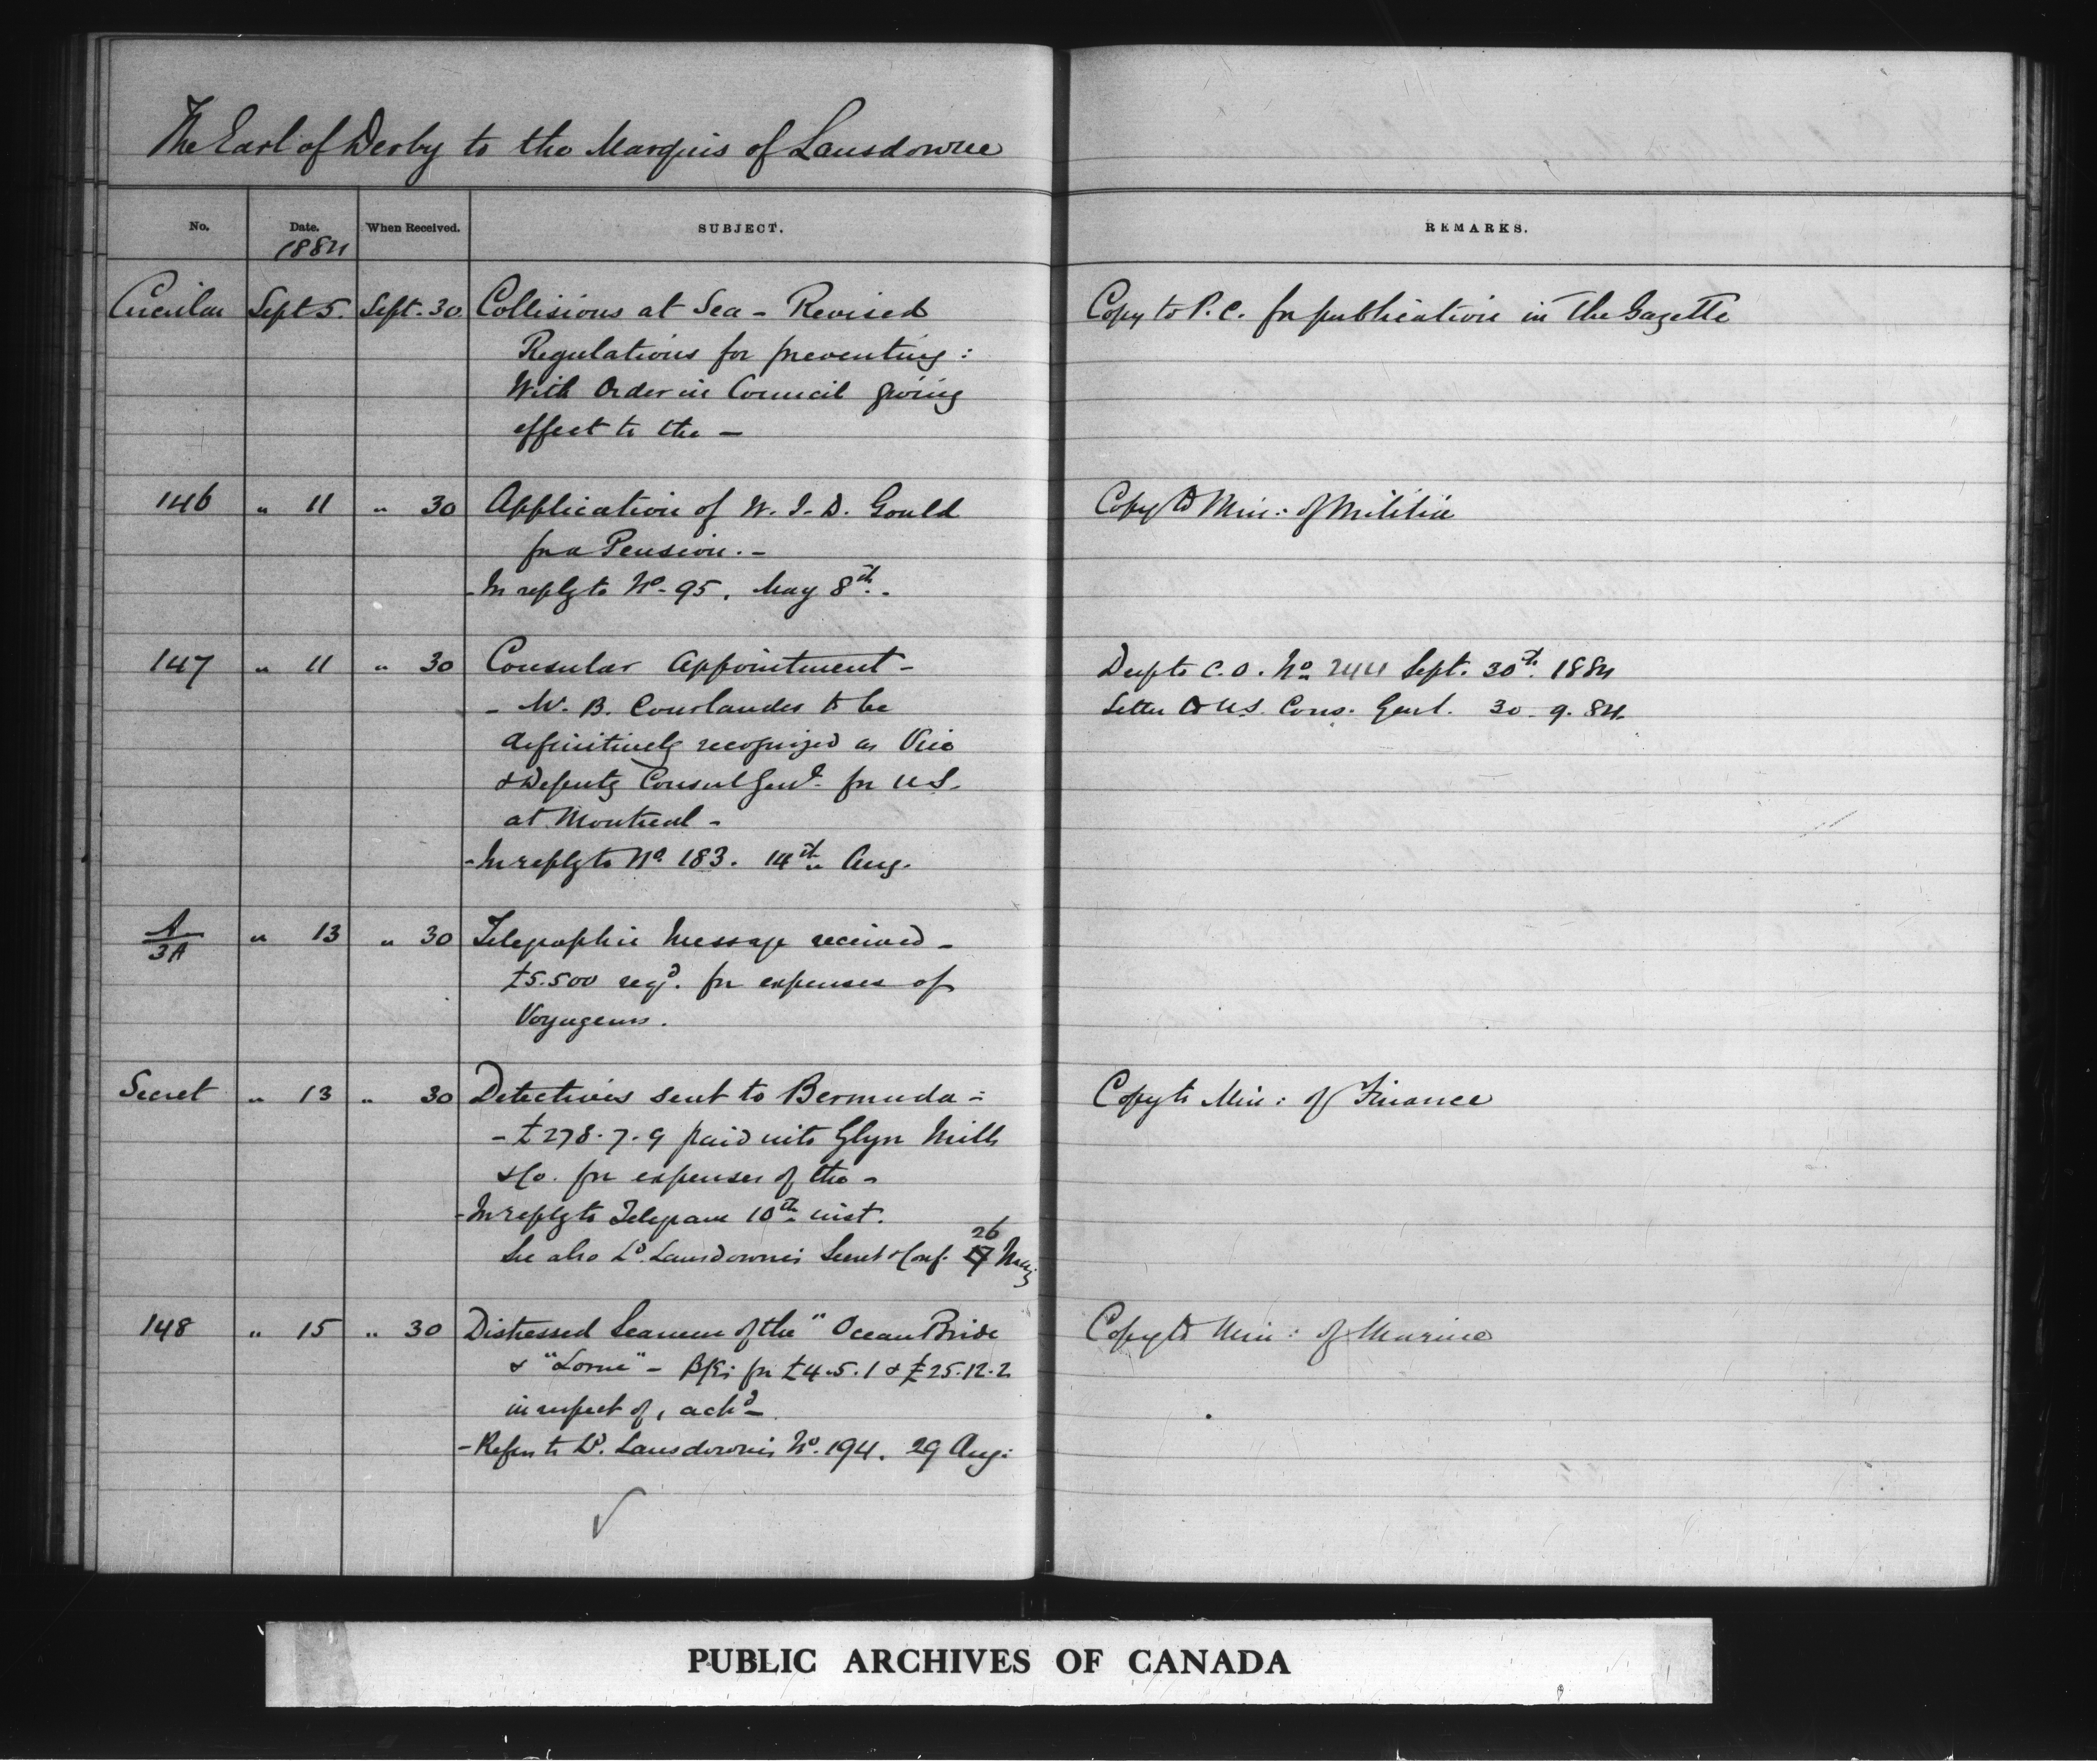 The Earl of Derby to the Marquis of Lansdowne
No. Date. When Received. SUBJECT. REMARKS.
1884
Circular Sept 5. Sept. 30 Collisions at Sea - Revised Copy to P.C. for publication in the Gazette
Regulations for preventing :
With Order in Council giving
effect to the -
146 " 11 " 30 Application of W. I. D. Gould Copy to Min: of Militia
for a Pension. -
- In reply to No. 95, May 8th. -
147 " 11 " 30 Consular Appointment - Desp to C.O. No 244 Sept. 30th. 1884
- W. B. Courlander to be Letter to U.S. Cons. Genl. 30. 9. 84
definitively recognized as Vice
& Deputy Consul Genl. for U.S.
at Montreal -
- In reply to No. 183. 14th Aug.
A/3A " 13 " 30 Telegraphic Message received -
£5.500 reqd. for expenses of
Voyageurs.
Secret " 13 " 30 Detectives sent to Bermuda = Copy to Min: of Finance
- £278.7.9 paid into Glyn Mills
& Co. for expenses of the -
- In reply to Telegram 10th inst.
26
See also Ld. Lansdowne's Secret & Conf. 17 May
148 " 15 " 30 Distressed Seamen of the "Ocean Bride Copy to Min: of Marine
& "Lorne" - for £4.5.1 & £25.12.2
in respect of, ackd -
- Refers to Ld. Lansdowne's No. 194. 29 Aug:
PUBLIC ARCHIVES OF CANADA